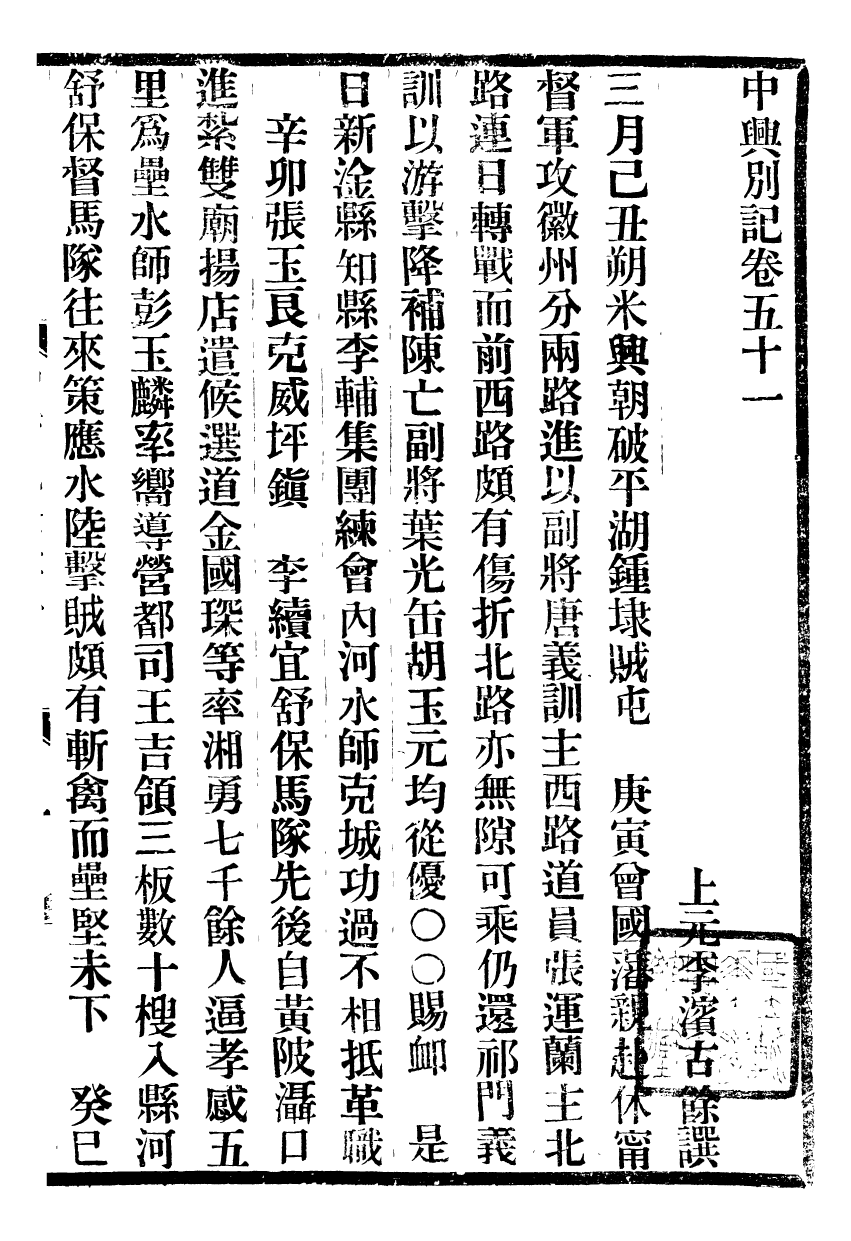 中興別記卷五十一
上元李濱古餘譔
三月己丑朔米興朝破平湖鍾埭賊屯　庚寅曾國藩親赴休甯
督軍攻徽州分兩路進以副將唐義訓主西路道員張運蘭主北
路連日轉戰而前西路頗有傷折北路亦無隙可乘仍還祁門義
訓以游擊降補陳亡副將葉光岳胡玉元均從優〇〇賜卹　是
日新淦縣知縣李輔集團練會內河水師克城功過不相抵革職
辛卯張玉良克威坪鎭　李續宜舒保馬隊先後自黃陂灄口
進紮雙廟揚店遣候選道金國琛等率湘勇七千餘人逼孝感五
里爲壘水師彭玉麟率嚮導營都司王吉領三板數十艘入縣河
舒保督馬隊往來策應水陸擊賊頗有斬禽而壘堅未下　癸巳